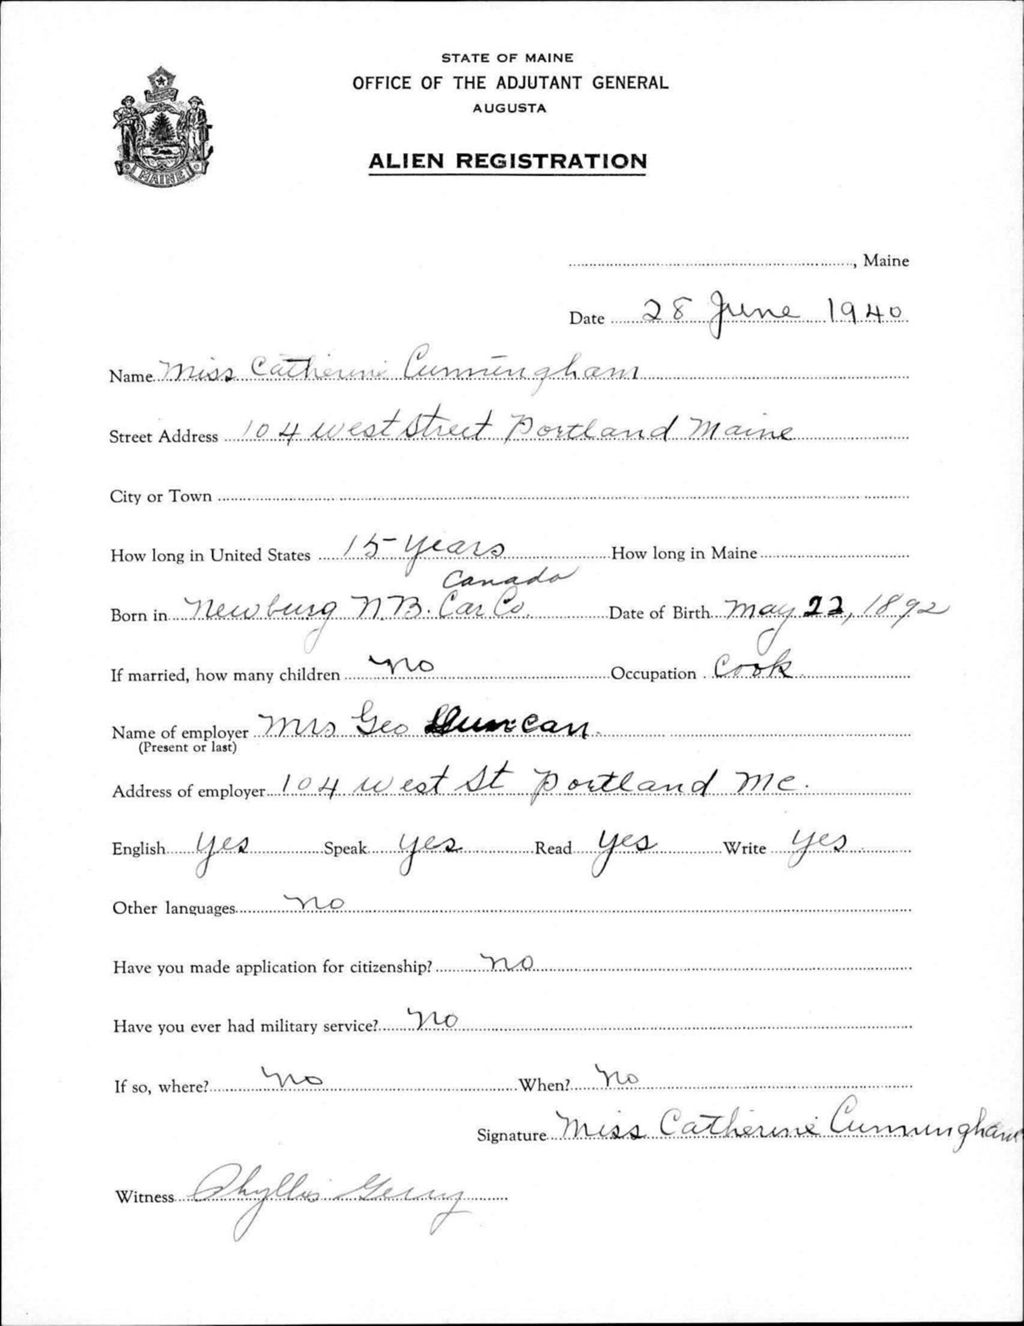 STATE OF MAINE
OFFICE OF THE ADJUTANT GENERAL
AUGUSTA
MAINE
ALIEN REGISTRATION
, Maine
Date 28 June 1940
Name Miss Catherine Cunningham
Street Address 104 West Street Portland Maine
City or Town
How long in United States 15 years How long in Maine
Canada
Born in Newburg N.B. Car Co. Date of Birth May 22, 1892
If married, how many children no Occupation Cook
Name of employer Mrs Geo Duncan.
(Present or last)
Address of employer 104 West St Portland Me.
English yes Speak yes Read yes Write yes
Other languages no
Have you made application for citizenship? no
Have you ever had military service? no
If so, where? no When? no
Signature Miss Catherine Cunningham
Witness Phyllis